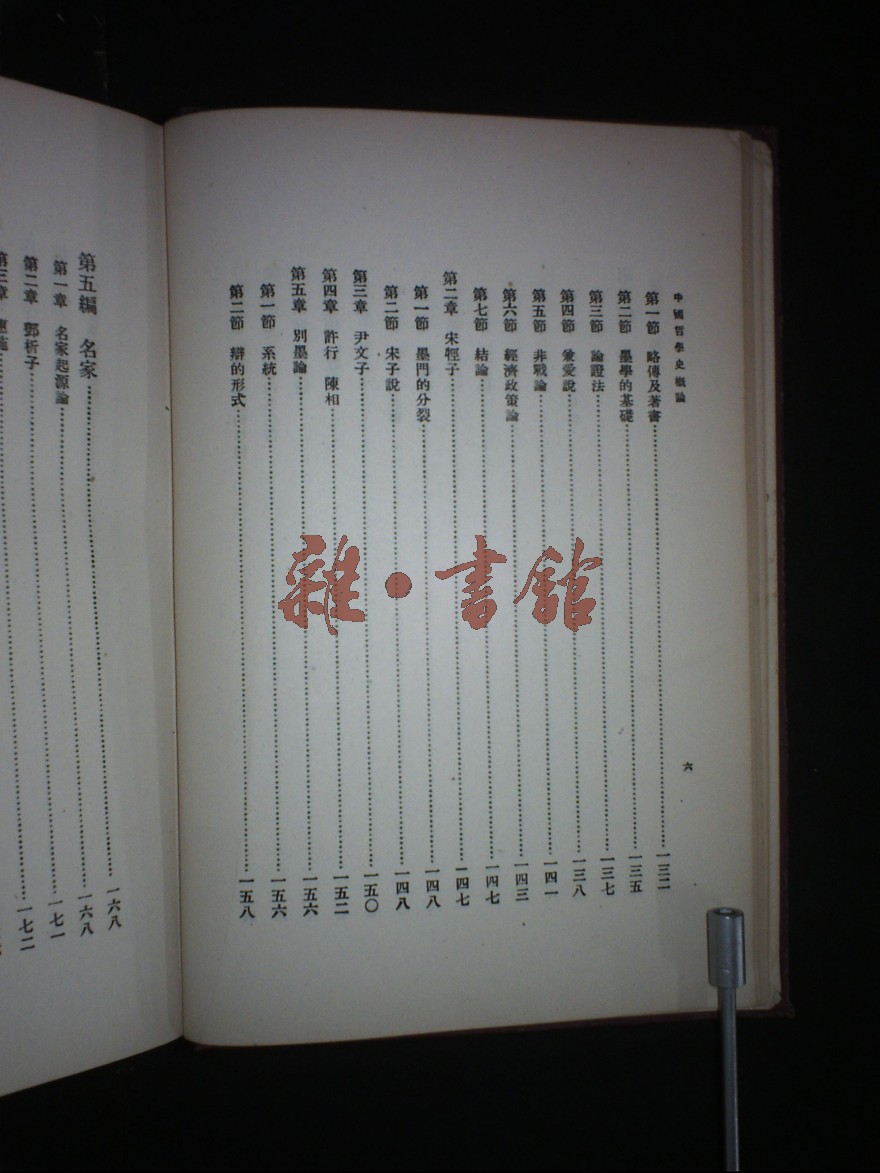 中國哲學史概論
六
第一節 略傳及著書……一三二
第二節 墨學的基礎……一三五
第三節 論證法……一三七
第四節 兼愛說……一三八
第五節 非戰論……一四一
第六節 經濟政策論……一四三
第七節 結論……一四七
第二章 宋牼子……一四七
第一節 墨門的分裂……一四八
第二節 宋子說……一四八
第三章 尹文子……一五〇
第四章 許行 陳相……一五二
第五章 別墨論……一五六
第一節 系統……一五六
第二節 辯的形式……一五八
第五編 名家……一六八
第一章 名家起源論……一六八
第二章 鄧析子……一七一
第三章……一七二
雜·書館